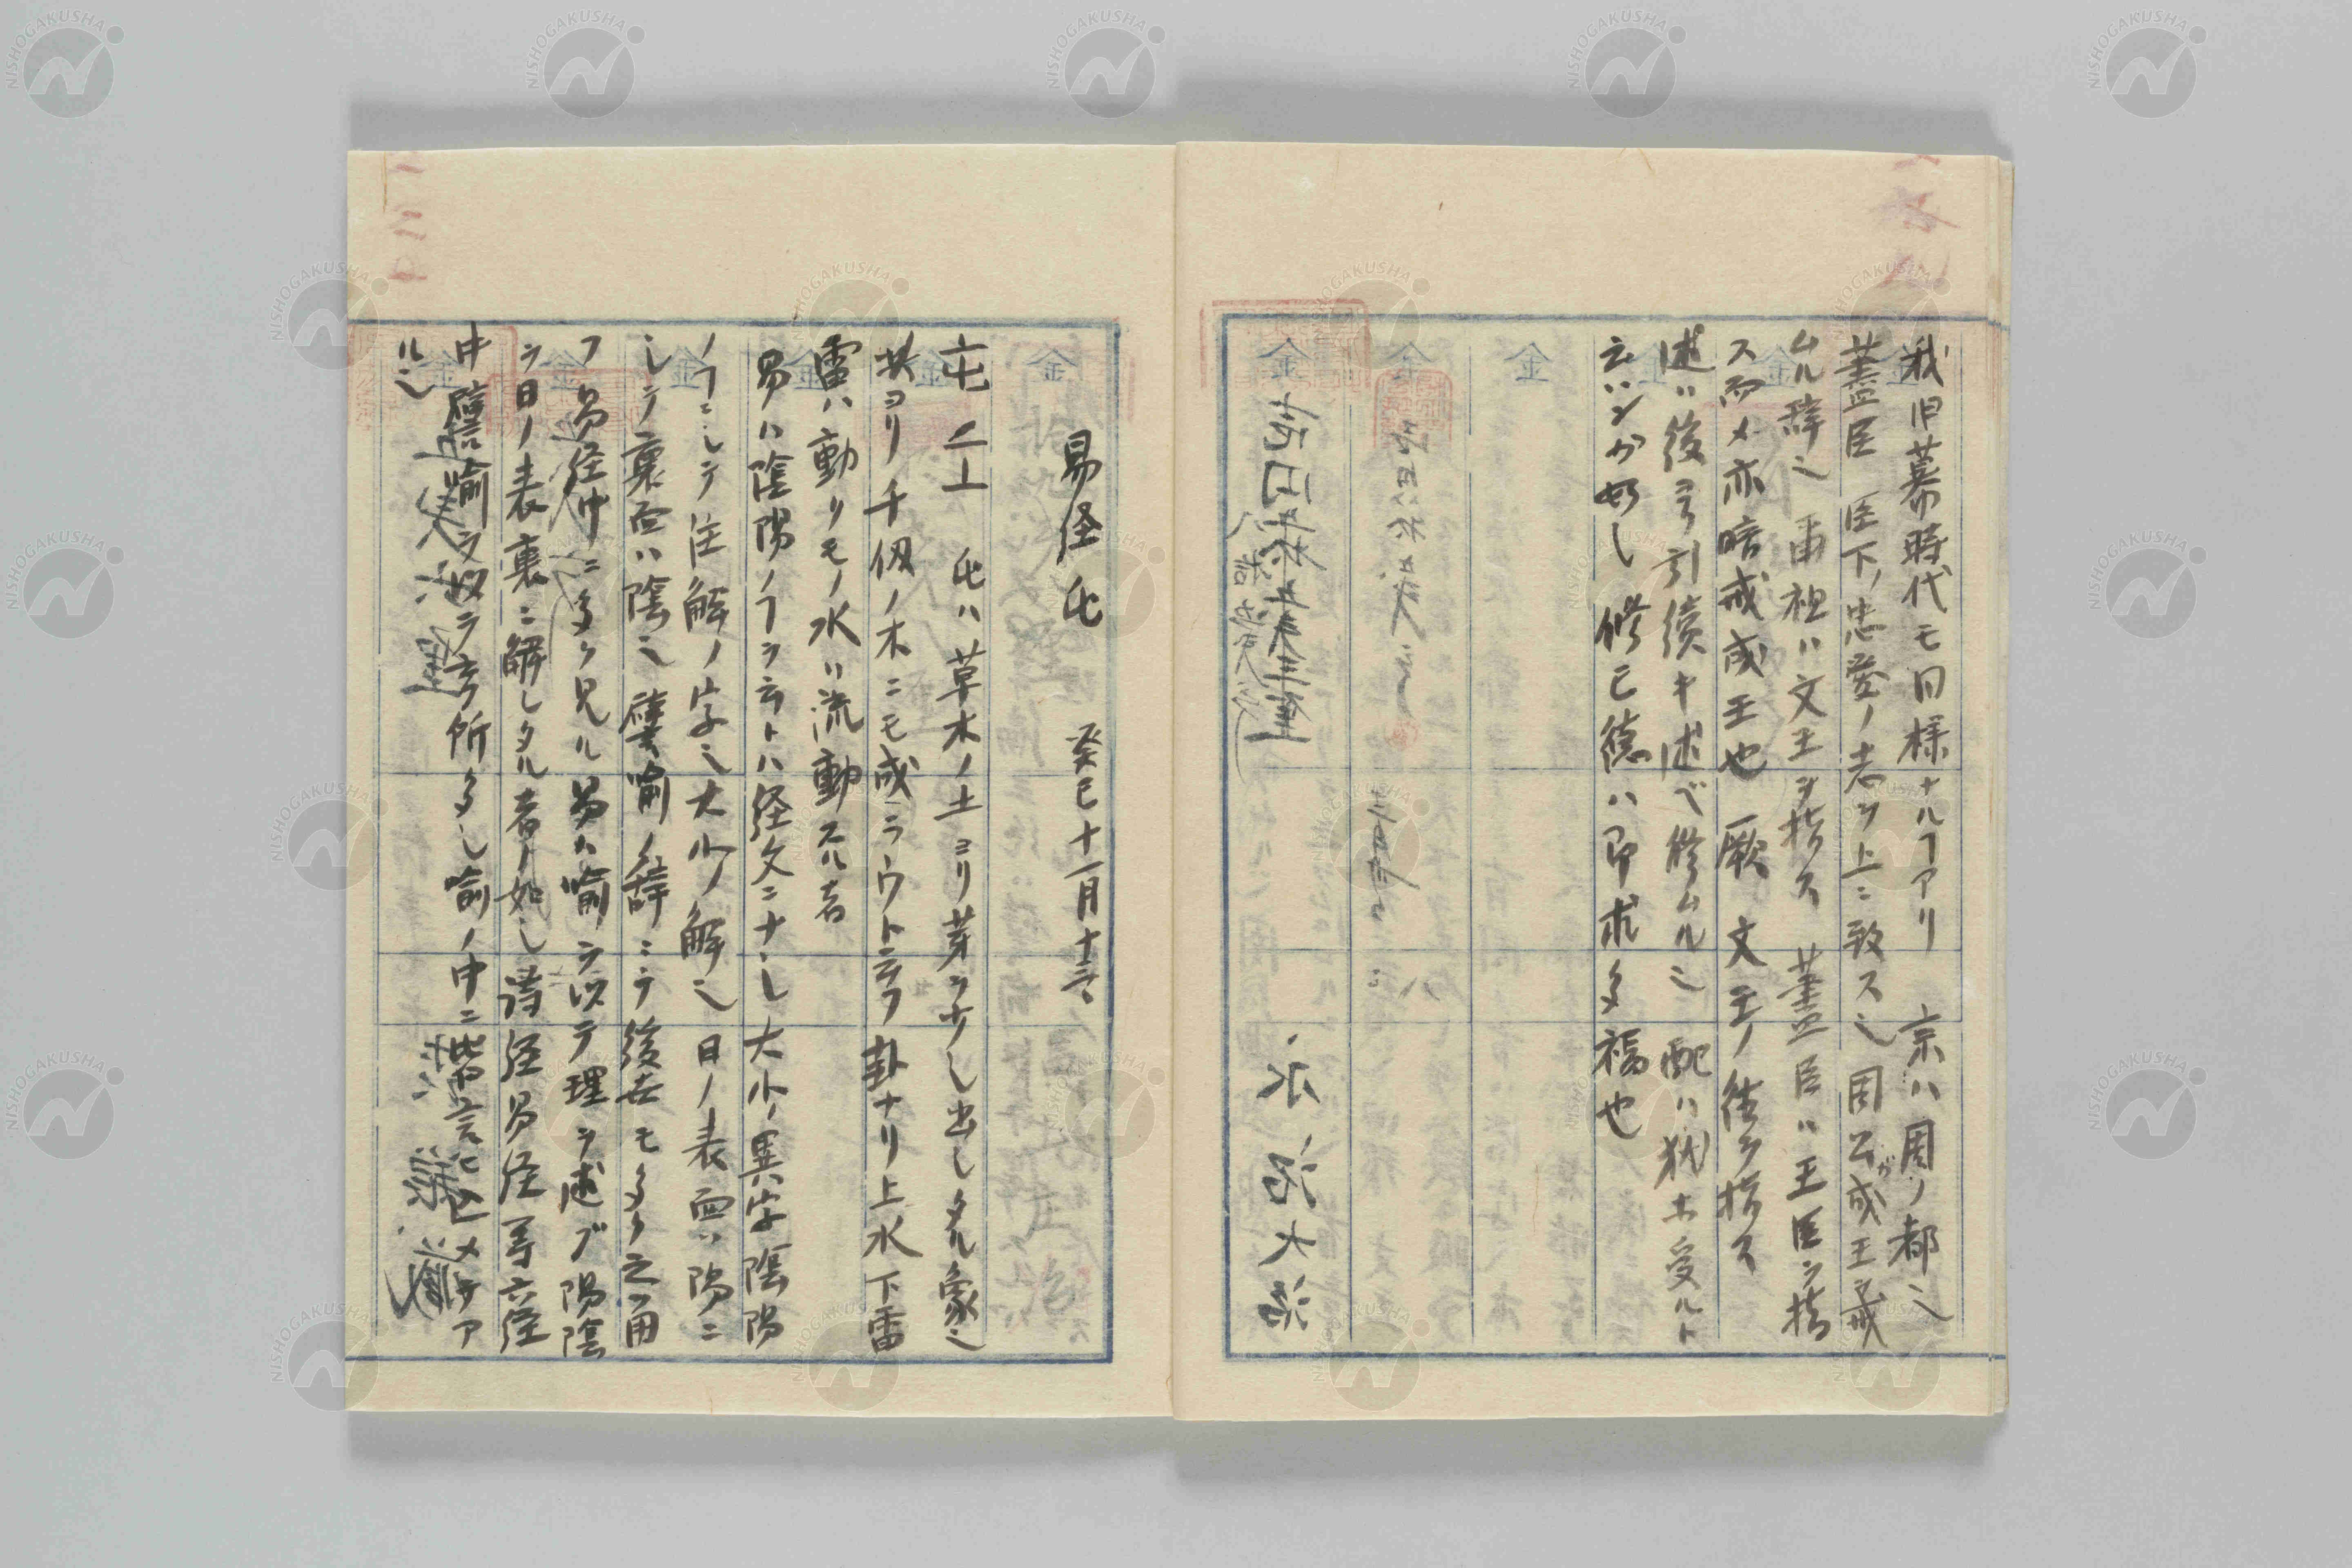 我旧幕時代モ同様ナルヿアリ 京ハ周ノ都ニ
藎臣 臣下ノ忠愛ノ志ヲ上ニ致スニ 周公ガ成王ヲ戒
ムル辞ニ 甫祖ハ文王ヲ指ス 藎臣ハ王臣ヲ指
ス而メ亦暗戒成王也 厥 文王ノ徳ヲ指ス
述ハ後ヨリ引続キ述ベ修ムルニ 配ハ猶ホ受ルト
云ハンガ如し 修己徳ハ即求多福也
易経 屯 癸巳十一月十三
屯 屯ハ草木ノ土ヨリ芽ヲナし出しタル象ニ
共ヨリ千仭ノ木ニモ成ラウト云フ卦ナリ上水下雷
雷ハ動クモノ水ハ流動スル者
易ハ陰陽ノヿヲ云トハ経文ニナし 大小ノ異字陰陽
ノヿニして 注解ノ字ニ大小ノ解ニ 日ノ表面ハ陽ニ
して裏面ハ陰ニ 譬喩ノ辞ニテ後世モ多ク之ヲ用
フ 易経中ニ多ク見ル 易ハ喩ヲ以テ理ヲ述ブ 陽陰
ヲ日ノ表裏ニ解しタル者ノ如し 詩経易経等六経
中 譬喩ヲ以テ云フ所多し 喩ノ中ニ皆言ヒ込メテア
ルニ
金
金
金
金
金
金
金
金
NISHOGAKUSHA